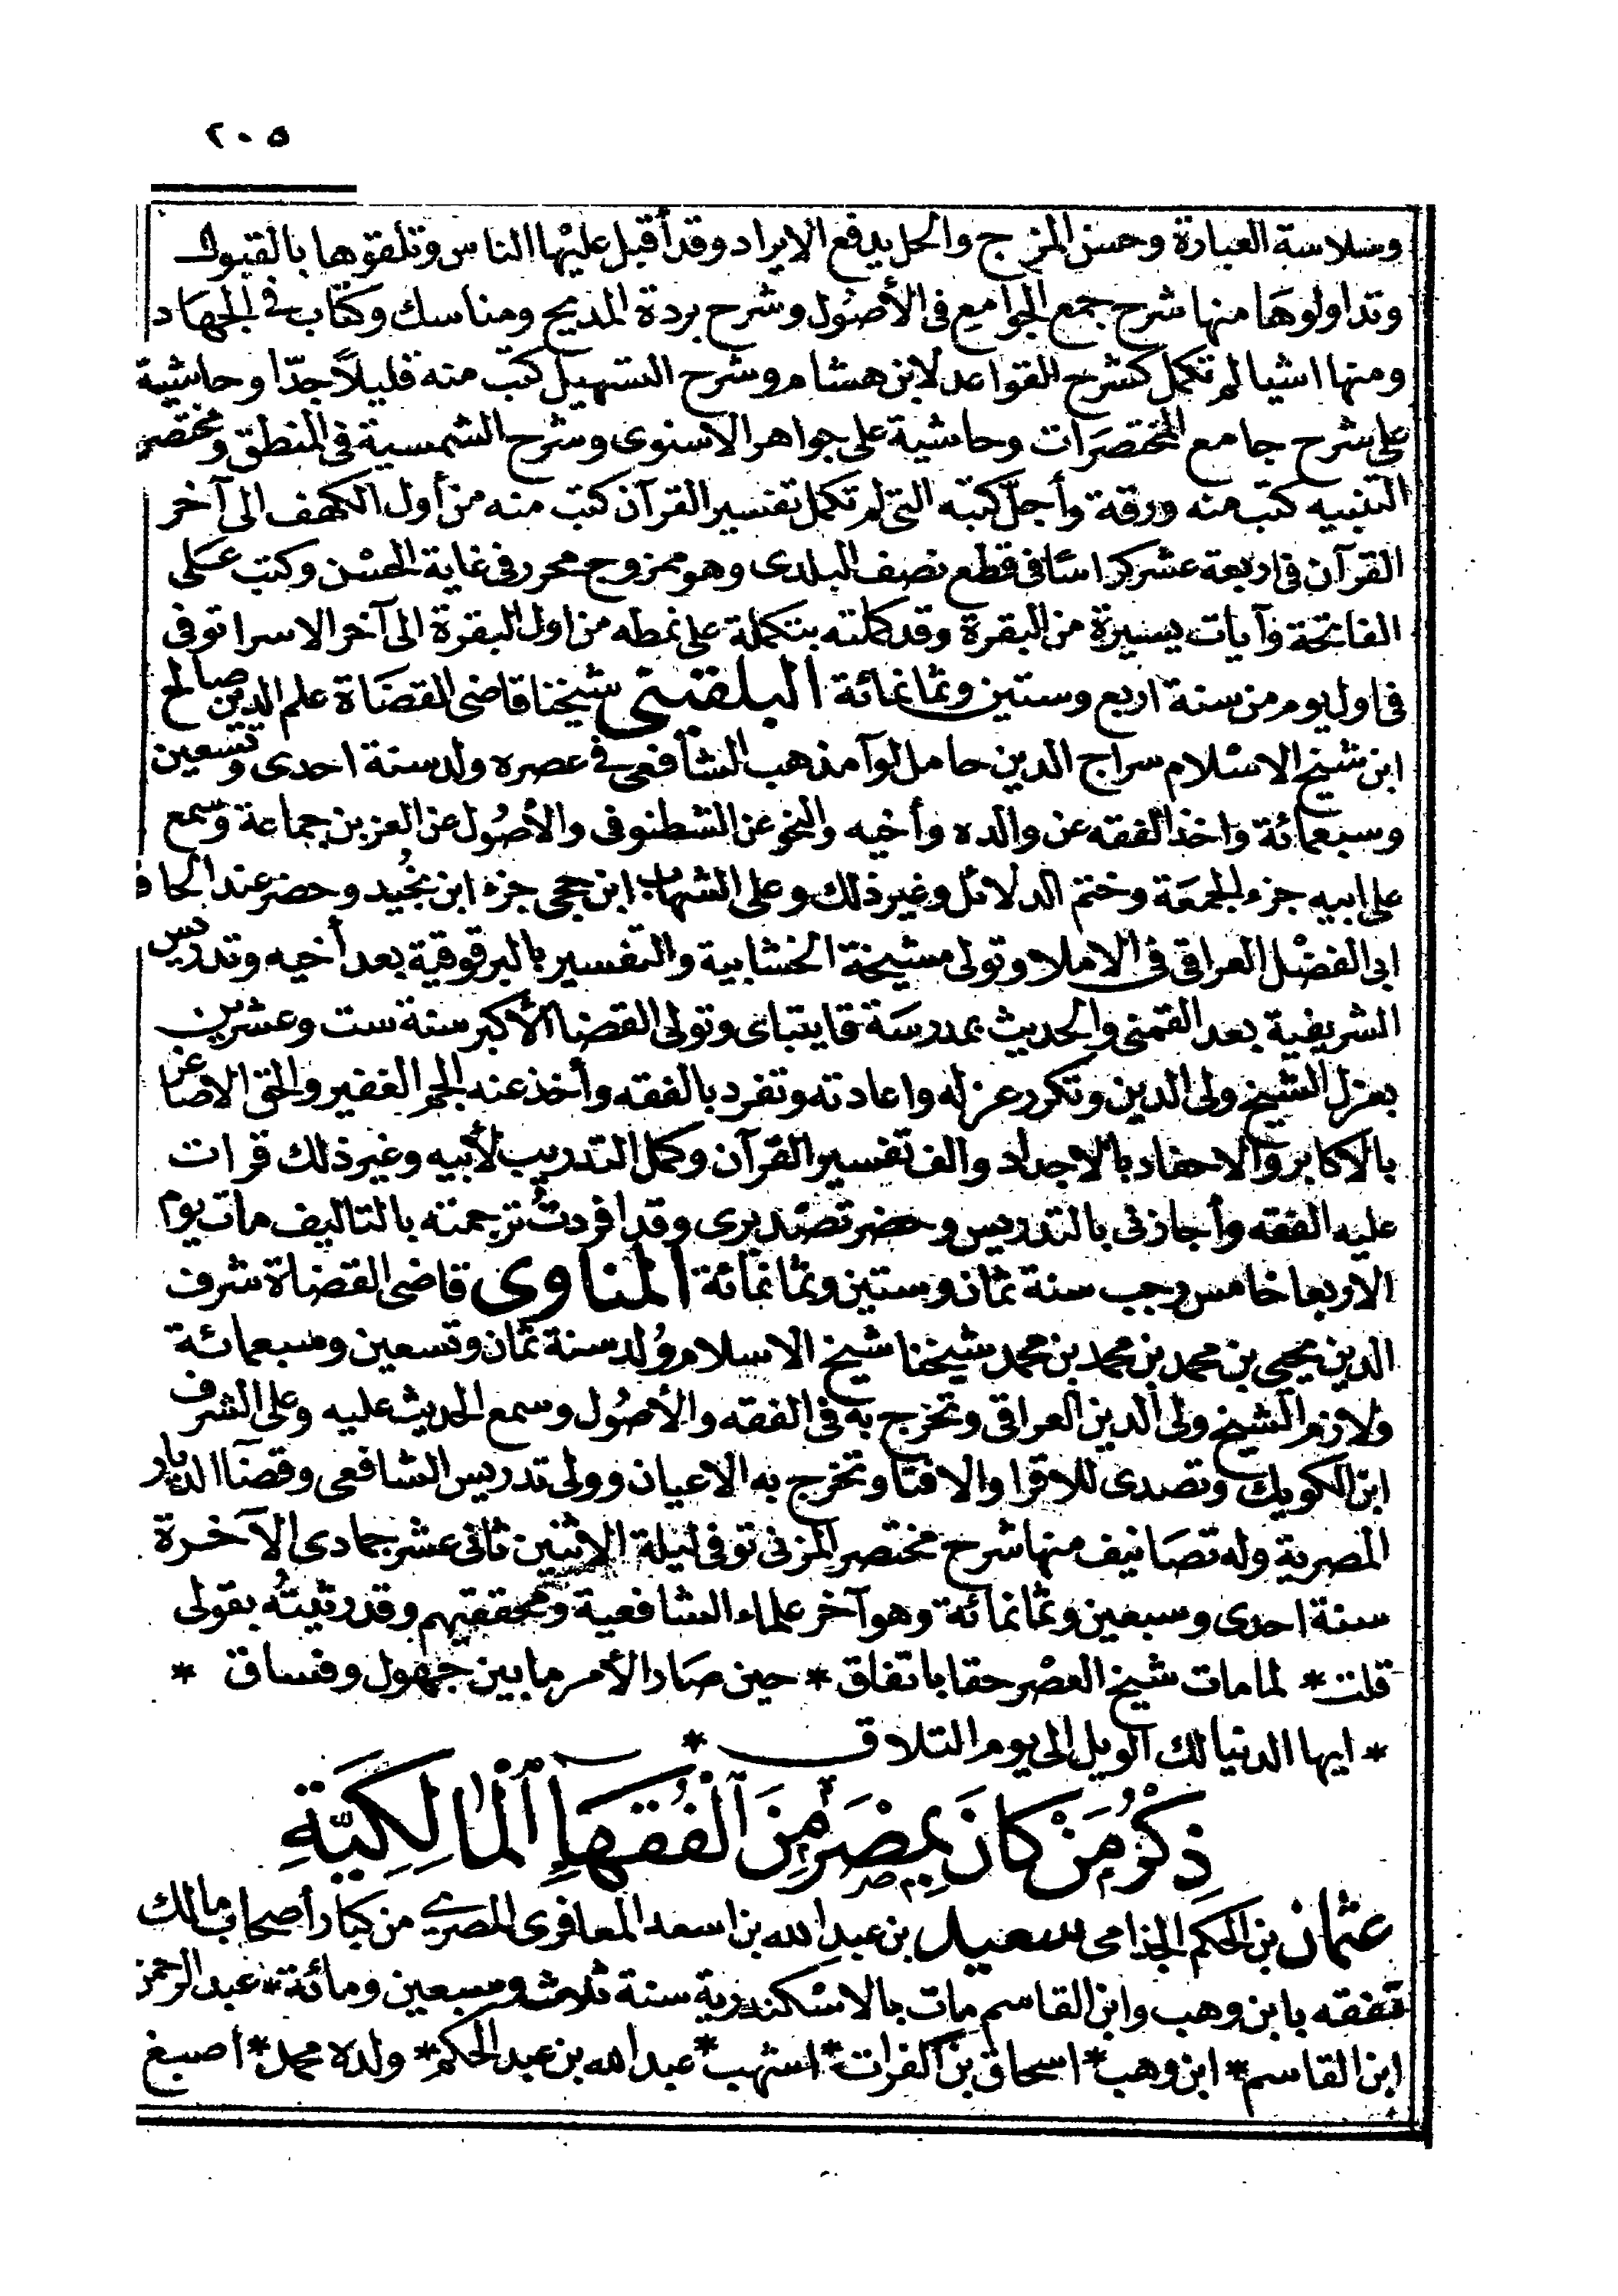 ٢٠٥
وسلاسة العبارة وحسن المزج والحل يدفع الايراد وقد أقبل عليها الناس وتلقوها بالقبول
وتداولوها منها شرح جمع الجوامع فى الأصول وشرح بردة المديح ومناسك وكتاب فى الجهاد
ومنها اشيا لم تكمل كشرح القواعد لابن هشام وشرح التسهيل كتب منه قليلاً جدّا وحاشية
على شرح جامع المختصرات وحاشية على جواهر الاسنوى وشرح الشمسية فى المنطق ومختصر
التنبيه كتب منه ورقة وأجلّ كتبه التى لم تكمل تفسير القرآن كتب منه من أول الكهف الى آخر
القرآن فى اربعة عشر كراسًا فى قطع نصف البلدى وهو ممزوج محرر فى غاية الحسْن وكتب على
الفاتحة وآيات يسيرة من البقرة وقد كملته بتكملة على نمطه من اول البقرة الى آخر الاسرا توفى
فى اول يوم من سنة اربع وستين وثمانمائة البلقينى شيخنا قاضى القضاة علم الدين صالح
ابن شيخ الاسْلام سراج الدين حامل لوآ مذهب الشافعى فى عصره ولد سنة احدى وتسعين
وسبعمائة واخذ الفقه عن والده وأخيه والنحو عن الشطنوفى والأصُول عن العز بن جماعة وسمع
على ابيه جزء الجمعة وختم الدلائل وغير ذلك وعلى الشهاب ابن حجى جزء ابن نجُيد وحضر عند الحافظ
ابى الفضْل العراقى فى الاملا وتولى مشيخة الخشابية والتفسير بالبرقوقية بعد أخيه وتدريس
الشريفية بعد القمنى والحديث بمدرسة قايتباى وتولى القضا الأكبر سنة ست وعشرين
بعزل الشيخ ولى الدين وتكرر عزله واعادته وتفرد بالفقه وأخذ عنه الجم الغفير والحق الاصاغر
بالاكابر والاحفاد بالاجداد والف تفسير القرآن وكمل التدريب لأبيه وغير ذلك قرات
عليه الفقه وأجازنى بالتدريس وحضر تصْديرى وقد افردتُ ترجمته بالتاليف مات يوم
الاربعا خامس رجب سنة ثمان وستين وثمانمائة المناوى قاضى القضاة شرف
الدين يحيى بن محمد بن محمد بن محمد شيخنا شيخ الاسلام وُلد سنة ثمان وتسعين وسبعمائة
ولازم الشيخ ولى الدين العراقى وتخرج به فى الفقه والأصُول وسمع الحديث عليه وعلى الشرف
ابن الكويك وتصدى للاقرا والافتا وتخرج به الاعيان وولى تدريس الشافعى وقضآ الديار
المصرية وله تصانيف منها شرح مختصر المزنى توفى ليلة الاثنين ثانى عشر جمادى الآخرة
سنة احدى وسبعين وثمانمائة وهو آخر علماء الشافعية ومحققيهم وقد رثيتُه بقولى
قلت * لما مات شيخ العصْر حقا باتفاق * حين صار الأمر ما بين جهول وفساق *
* ايها الدنيا لك الويل الى يوم التلاق *
ذِكْرُ مَنْ كَانَ بِمِصْرَ مِنَ اَلْفُقَهَاءِ اَلْمَالِكِيَّةِ
عثمان بن الحكم الجذامى سعيد بن عبد الله بن اسعد المعافرى المصرى من كبار أصحاب مالك
تفقه بابن وهب وابن القاسم مات بالاسْكندرية سنة ثلاث وسبعين ومائة * عبد الرحمن
ابن القاسم * ابن وهب * اسحاق بن الفرات * اشهب * عبد الله بن عبد الحكم * ولده محمد * اصبغ